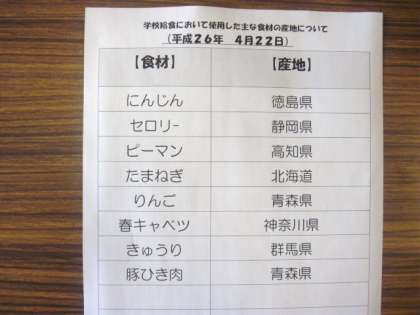 学校給食において使用した主な食材の産地について
（平成２６年　４月２２日）
【食材】　【産地】
にんじん　徳島県
セロリー　静岡県
ピーマン　高知県
たまねぎ　北海道
りんご　青森県
春キャベツ　神奈川県
きゅうり　群馬県
豚ひき肉　青森県